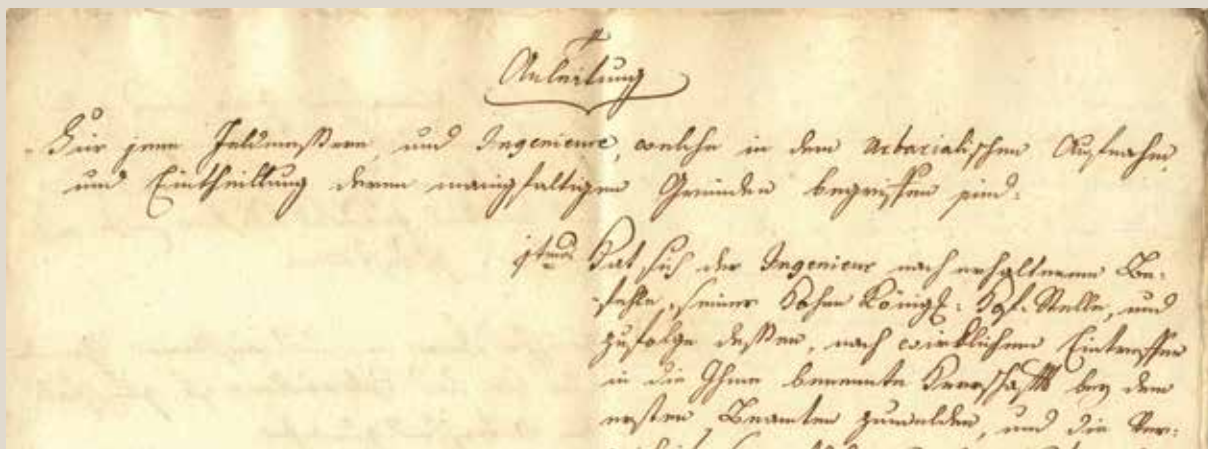 Anleitung
Für jene Feldmessere, und Ingenieure, welche in dem Urbarialischen Aufnahm,
und Eintheillung deren manigfaltigen Gründen begriffen sind.
1tens Hat sich der Ingenieur nach erhaltenem Be-
fehle, seiner Hohen Königl: Stelle, und
zufolge dessen, nach wirklichen Eintreffen
in die Ihme benennte Herrschafft bey dem
ersten Beamten zumelden, und die Ver-